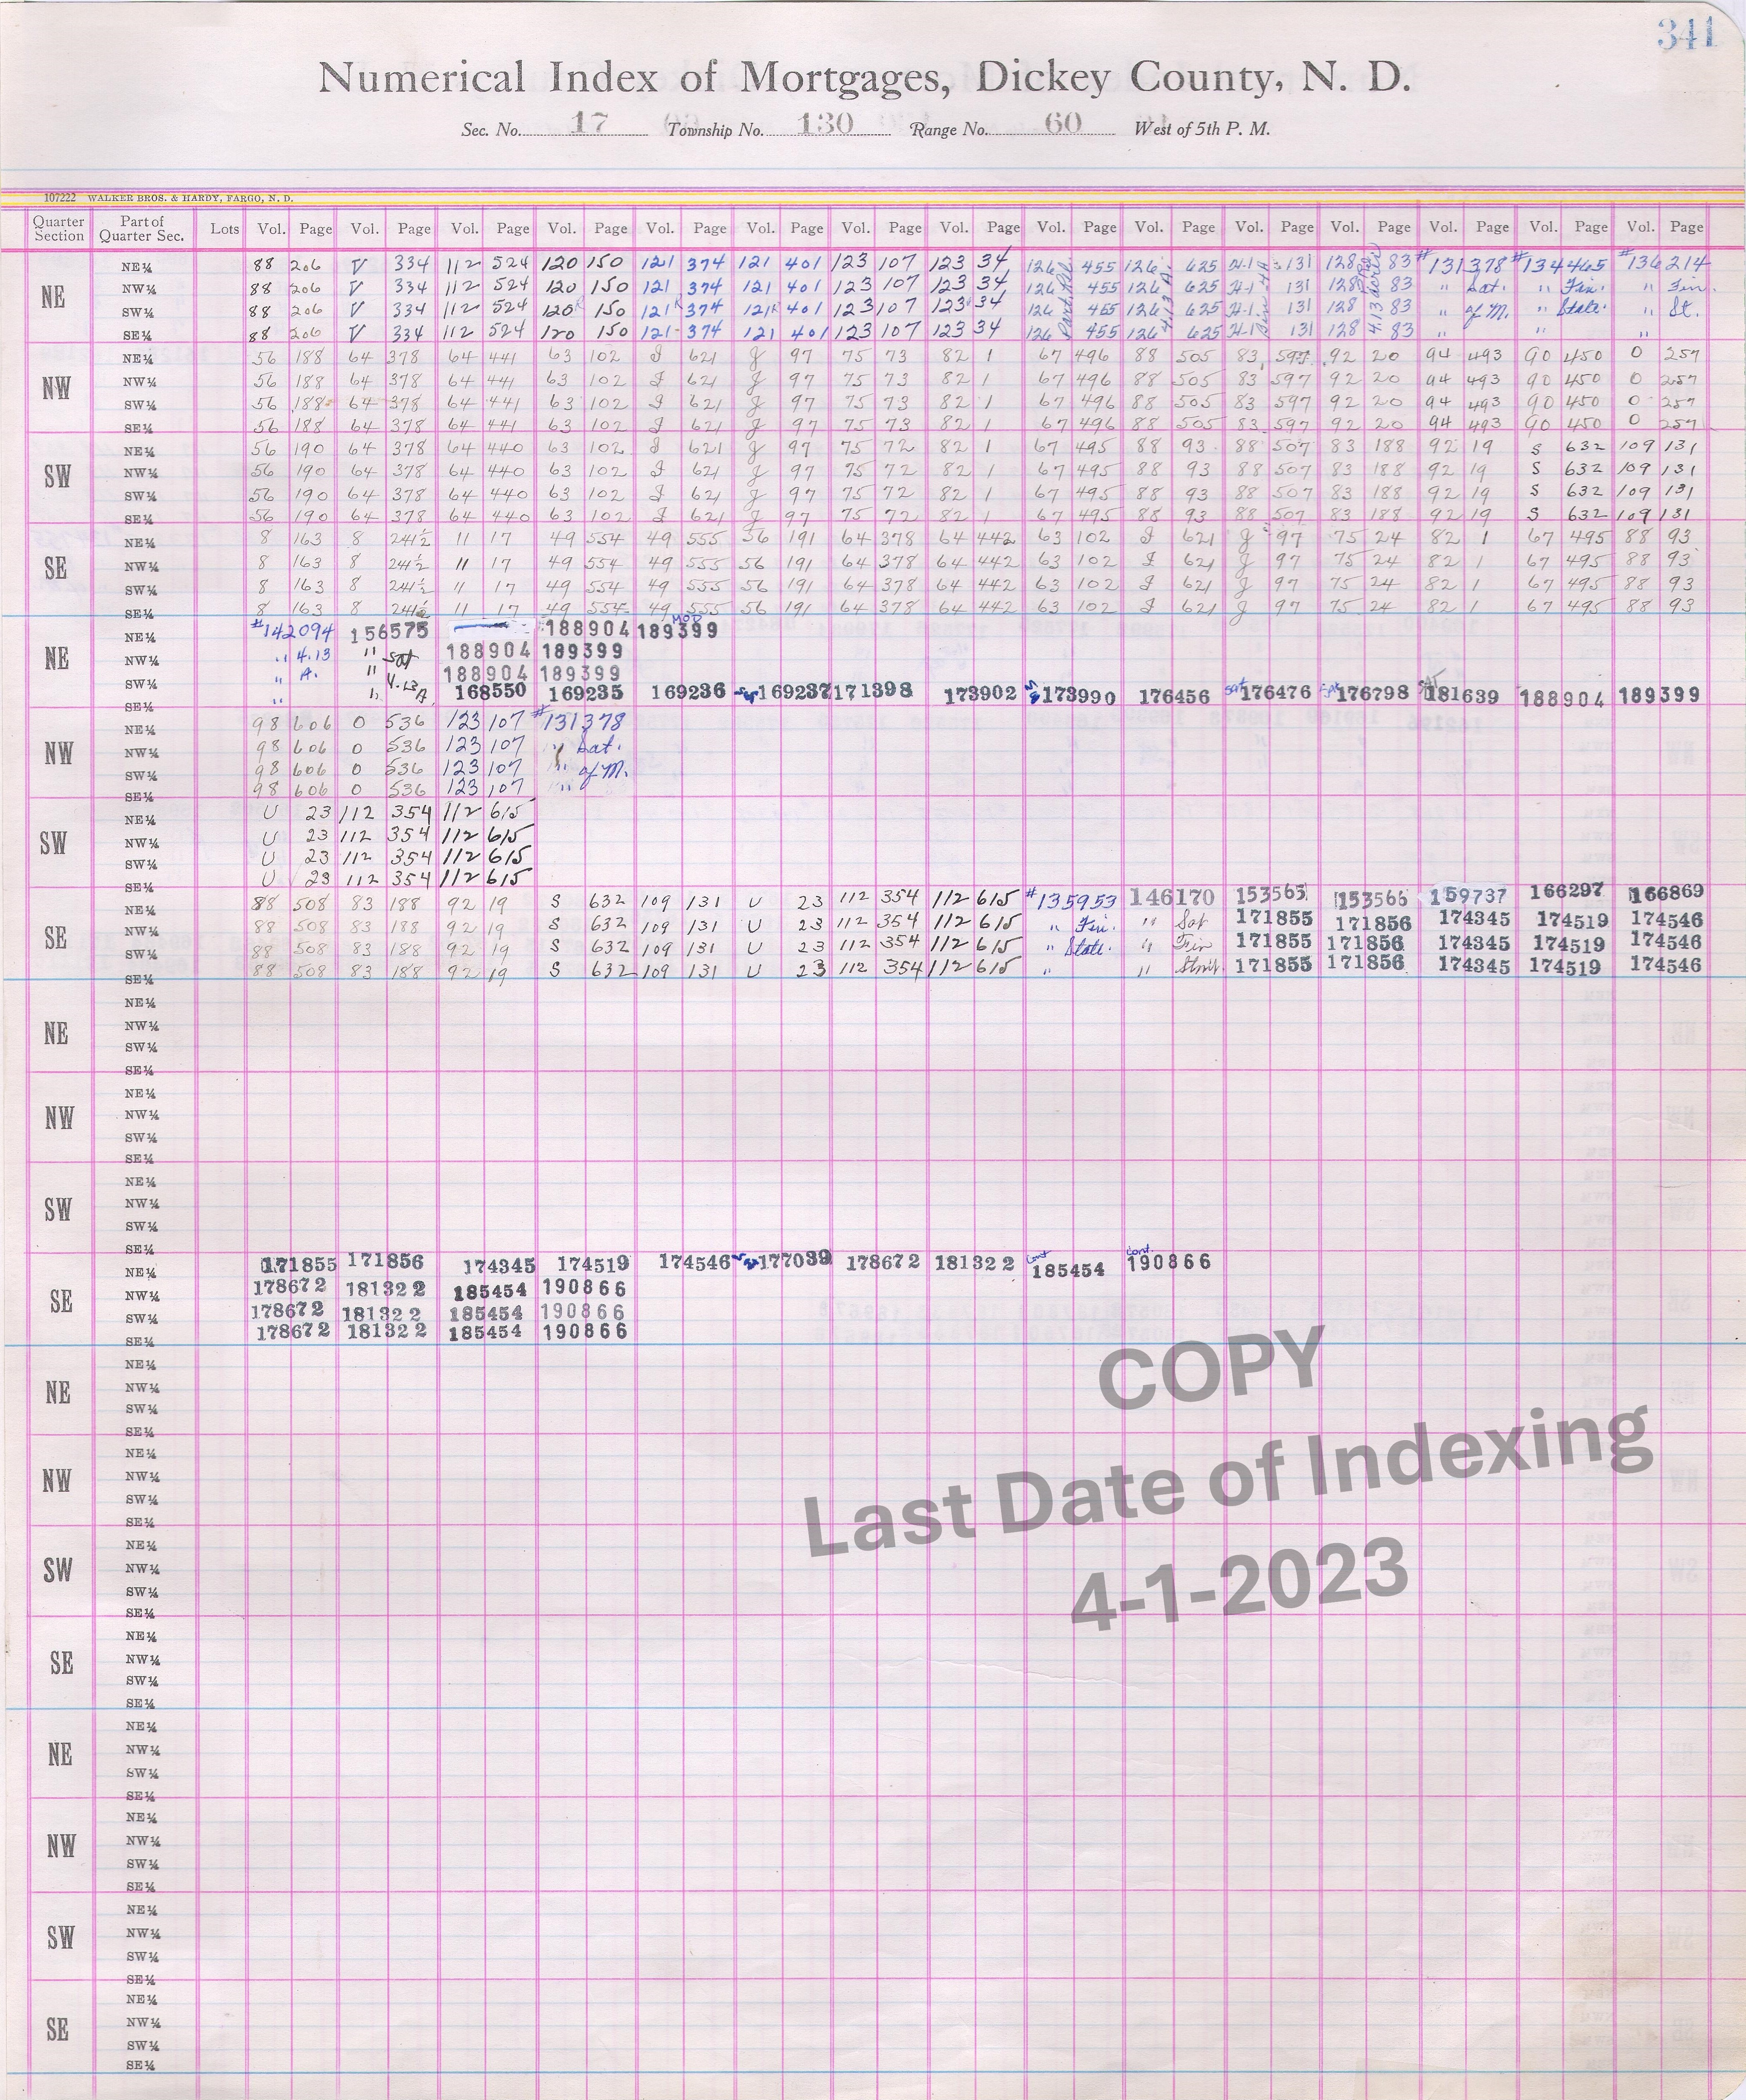 341
Numerical Index of Mortgages, Dickey County, N. D.
Sec. No. 17 Township No. 130 Range No. 60 West of 5th P. M.
107222 WALKER BROS. & HARDY, FARGO, N. D.
Quarter Section Part of Quarter Sec. Lots Vol. Page Vol. Page Vol. Page Vol. Page Vol. Page Vol. Page Vol. Page Vol. Page Vol. Page Vol. Page Vol. Page Vol. Page Vol. Page Vol. Page Vol. Page
NE
NE¼ 88 206 V 334 112 524 120 150 121 374 121 401 123 107 123 34 126 455 126 625 H-1 131 128 83 #131378 #134465 #136214
NW¼ 88 206 V 334 112 524 120 150 121 374 121 401 123 107 123 34 126 455 126 625 H-1 131 128 83 " Sat. " Fin. " Fin.
SW¼ 88 206 V 334 112 524 120 R 150 121 R 374 121 R 401 123 107 123 34 126 455 126 625 H-1 131 128 83 " of M. " State. " St.
SE¼ 88 206 V 334 112 524 120 150 121 374 121 401 123 107 123 34 126 455 126 625 H-1 131 128 83 " " "
NW
NE¼ 56 188 64 378 64 441 63 102 I 621 g 97 75 73 82 1 67 496 88 505 83 597 92 20 94 493 90 450 O 257
NW¼ 56 188 64 378 64 441 63 102 I 621 g 97 75 73 82 1 67 496 88 505 83 597 92 20 94 493 90 450 O 257
SW¼ 56 188 64 378 64 441 63 102 I 621 g 97 75 73 82 1 67 496 88 505 83 597 92 20 94 493 90 450 O 257
SE¼ 56 188 64 378 64 441 63 102 I 621 g 97 75 73 82 1 67 496 88 505 83 597 92 20 94 493 90 450 O 257
SW
NE¼ 56 190 64 378 64 440 63 102 I 621 g 97 75 72 82 1 67 495 88 93 88 507 83 188 92 19 S 632 109 131
NW¼ 56 190 64 378 64 440 63 102 I 621 g 97 75 72 82 1 67 495 88 93 88 507 83 188 92 19 S 632 109 131
SW¼ 56 190 64 378 64 440 63 102 I 621 g 97 75 72 82 1 67 495 88 93 88 507 83 188 92 19 S 632 109 131
SE¼ 56 190 64 378 64 440 63 102 I 621 g 97 75 72 82 1 67 495 88 93 88 507 83 188 92 19 S 632 109 131
SE
NE¼ 8 163 8 241½ 11 17 49 554 49 555 56 191 64 378 64 442 63 102 I 621 g 97 75 24 82 1 67 495 88 93
NW¼ 8 163 8 241½ 11 17 49 554 49 555 56 191 64 378 64 442 63 102 I 621 g 97 75 24 82 1 67 495 88 93
SW¼ 8 163 8 241½ 11 17 49 554 49 555 56 191 64 378 64 442 63 102 I 621 g 97 75 24 82 1 67 495 88 93
SE¼ 8 163 8 241½ 11 17 49 554 49 555 56 191 64 378 64 442 63 102 I 621 g 97 75 24 82 1 67 495 88 93
NE
NE¼ #142094 156575 188904 MOD 189399
NW¼ " 4.13 " Sat 188904 189399
SW¼ " A. " 4.13 188904 189399
SE¼ " " A 168550 169235 169236 169237 171398 173902 173990 176456 Sat 176476 Sat 176798 SAT 181639 188904 189399
NW
NE¼ 98 606 O 536 123 107 #131378
NW¼ 98 606 O 536 123 107 " Sat.
SW¼ 98 606 O 536 123 107 " of M.
SE¼ 98 606 O 536 123 107 "
SW
NE¼ U 23 112 354 112 615
NW¼ U 23 112 354 112 615
SW¼ U 23 112 354 112 615
SE¼ U 23 112 354 112 615
SE
NE¼ 88 508 83 188 92 19 S 632 109 131 U 23 112 354 112 615 #135953 146170 153565 153566 159737 166297 166869
NW¼ 88 508 83 188 92 19 S 632 109 131 U 23 112 354 112 615 " Fin. " Sat 171855 171856 174345 174519 174546
SW¼ 88 508 83 188 92 19 S 632 109 131 U 23 112 354 112 615 " State. " Fin 171855 171856 174345 174519 174546
SE¼ 88 508 83 188 92 19 S 632 109 131 U 23 112 354 112 615 " " 171855 171856 174345 174519 174546
NE
NE¼
NW¼
SW¼
SE¼
NW
NE¼
NW¼
SW¼
SE¼
SW
NE¼
NW¼
SW¼
SE¼
SE
NE¼ 171855 171856 174345 174519 174546 177039 178672 181322 cont 185454 cont. 190866
NW¼ 178672 181322 185454 190866
SW¼ 178672 181322 185454 190866
SE¼ 178672 181322 185454 190866
NE
NE¼
NW¼
SW¼
SE¼
NW
NE¼
NW¼
SW¼
SE¼
SW
NE¼
NW¼
SW¼
SE¼
SE
NE¼
NW¼
SW¼
SE¼
NE
NE¼
NW¼
SW¼
SE¼
NW
NE¼
NW¼
SW¼
SE¼
SW
NE¼
NW¼
SW¼
SE¼
SE
NE¼
NW¼
SW¼
SE¼
COPY
Last Date of Indexing
4-1-2023